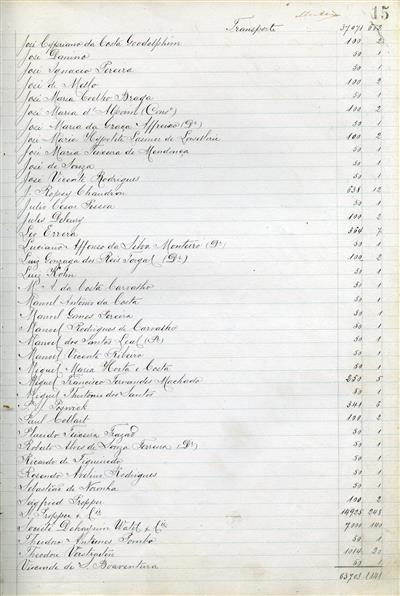 15
Transporte 37071 882
José Cypriano da Costa Goodolphim 100 2
José Damino 50 1
José Ignacio Pereira 50 1
José de Mello 100 2
José Maria Coelho Braga 50 1
José Maria d'Alpoim (Cons°) 100 2
José Maria da Graça Affreixo (Dr) 50 1
José Maria Hippolito Larmer de 100 2
José Maria Teixeira de Mendonça 50 1
José de Souza 50 1
José Vicente Rodrigues 50 1
J. Ropsy Chaudron 638 12
Julio Cesar 50 1
Jules Deburg 100 2
Leo Errera 364 7
Luciano Affonso da Silva Monteiro (Dr) 50 1
Luiz Gonzaga dos Reis Torgal (Dr) 100 2
Luiz Kohn 50 1
M. A. da Costa Carvalho 50 1
Manuel Antonio da Costa 50 1
Manuel Gomes Pereira 50 1
Manuel Rodrigues de Carvalho 50 1
Manuel dos Santos Leal (Pe) 50 1
Manuel Vicente Ribeiro 50 1
Miguel Maria Horta e Costa 50 1
Miguel Francisco Fernandes Machado 250 5
Miguel Theotonio dos Santos 50 1
341 5
Paul Collart 100 2
Placido Teixeira Frazão 50 1
Roberto Alves de Souza Ferreira (Dr) 50 1
Ricardo de Figueiredo 50 1
Rosendo Avelino Rodrigues 50 1
Sebastião de Noronha 50 1
Siegfried Propper 100 2
S. Propper & Cie 14925 248
Société Dehaynin Watel & Cie 7000 140
Theodoro Antunes Pombo 50 1
Theodore Verstraeten 1014 20
Visconde de S. Boaventura 50 1
63703 1341